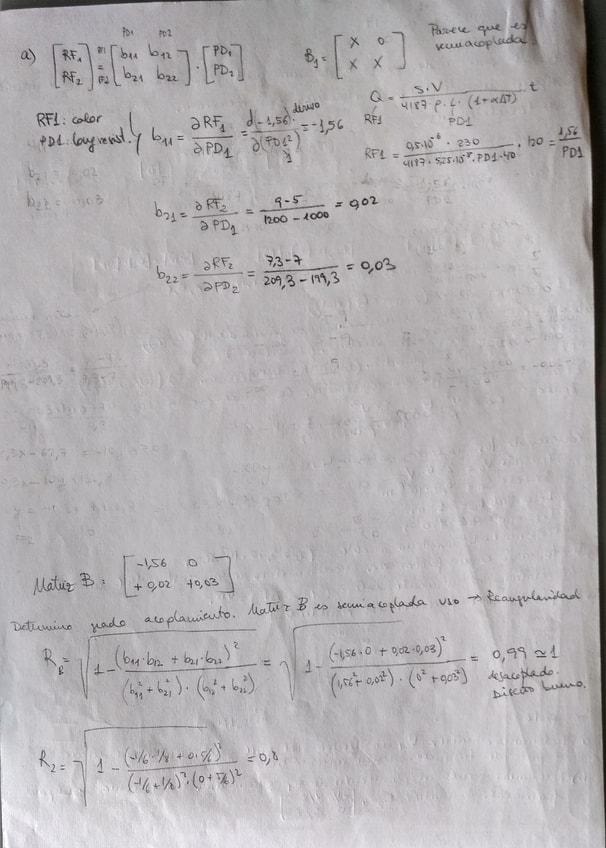 PD1 PD2
a) [RF1 RF2] = [b11 b12 b21 b22] · [PD1 PD2]
B1 = [X 0 X X]
Parece que es semiacoplada
Q = S·V / 4187·ρ·L·(1+αΔT) · t
RF1 PD1
RF1: color
PD1: long resist.
b11 = ∂RF1/∂PD1 = d(-1,56)/∂(PD1²) = -1,56
derivo
1
RF1 = 0,5·10⁻⁶ · 230 / 4187·5,25·10⁻⁸·PD1·40 · 120 = 1,56/PD1
b21 = ∂RF2/∂PD1 = 9-5 / 1200-1000 = 0,02
b22 = ∂RF2/∂PD2 = 7,3-7 / 209,3-199,3 = 0,03
Matriz B = [-1,56 0 +0,02 +0,03]
Determino grado acoplamiento. Matriz B es semiacoplada uso → Reangularidad
R_B = √(1 - (b11·b12 + b21·b22)² / (b11²+b21²)·(b12²+b22²)) = √(1 - (-1,56·0 + 0,02·0,03)² / (1,56²+0,02²)·(0²+0,03²)) = 0,99 ≃ 1
desacoplado.
Diseño bueno.
R2 = √(1 - (-1/6·1/8 + 0·5/6)² / (-1/6+1/8)²·(0+5/6)²) = 0,8